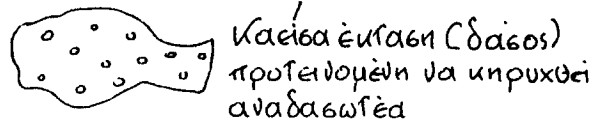 Καείσα έκταση (δάσος)
προτεινομένη να κηρυχθεί
αναδασωτέα